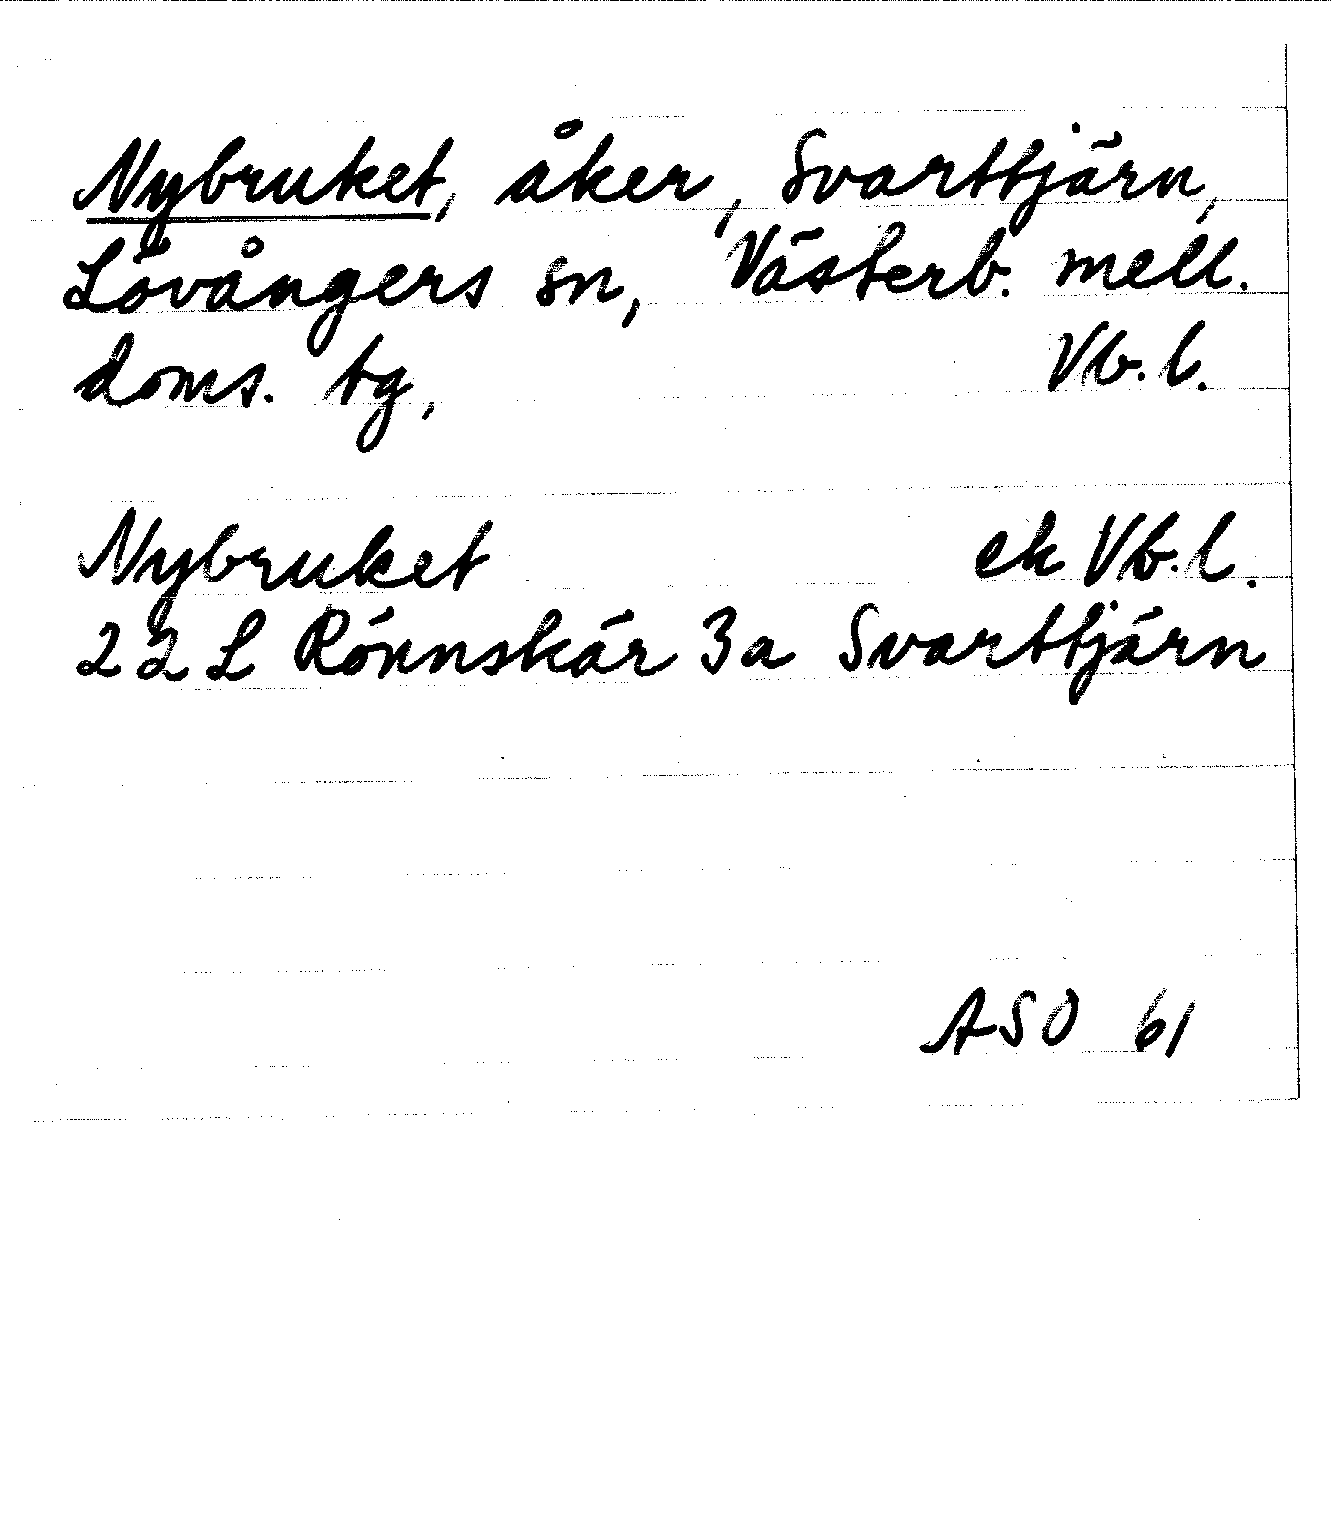 Nybruket, åker, Svarttjärn,
Lövångers sn, Västerb. mell.
doms. tg, Vb. l.
Nybruket ek Vb. l.
22 L Rönnskär 3a Svarttjärn
ASO 61